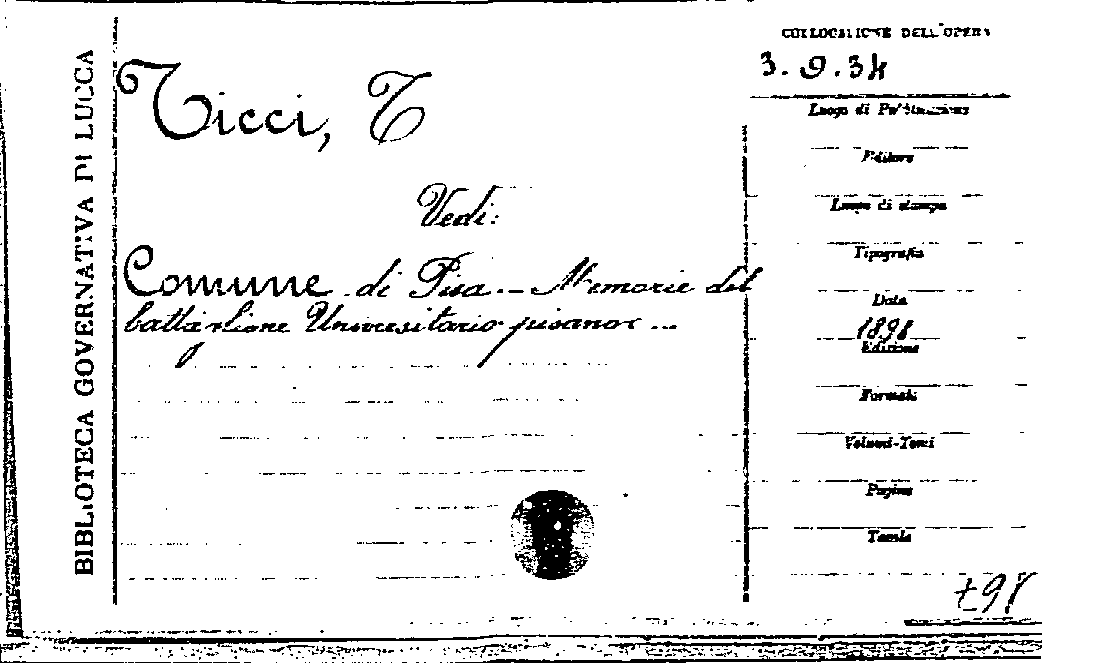 BIBLIOTECA GOVERNATIVA DI LUCCA
Ticci, T
Vedi:
Comune di Pisa - Memorie del
battaglione Universitario pisano ...
COLLOCAZIONE DELL'OPERA
3. 9. 34
Luogo di Pubblicazione
Editore
Luogo di stampa
Tipografia
Data
1898
Edizione
Formato
Volumi-Tomi
Pagine
Tavole